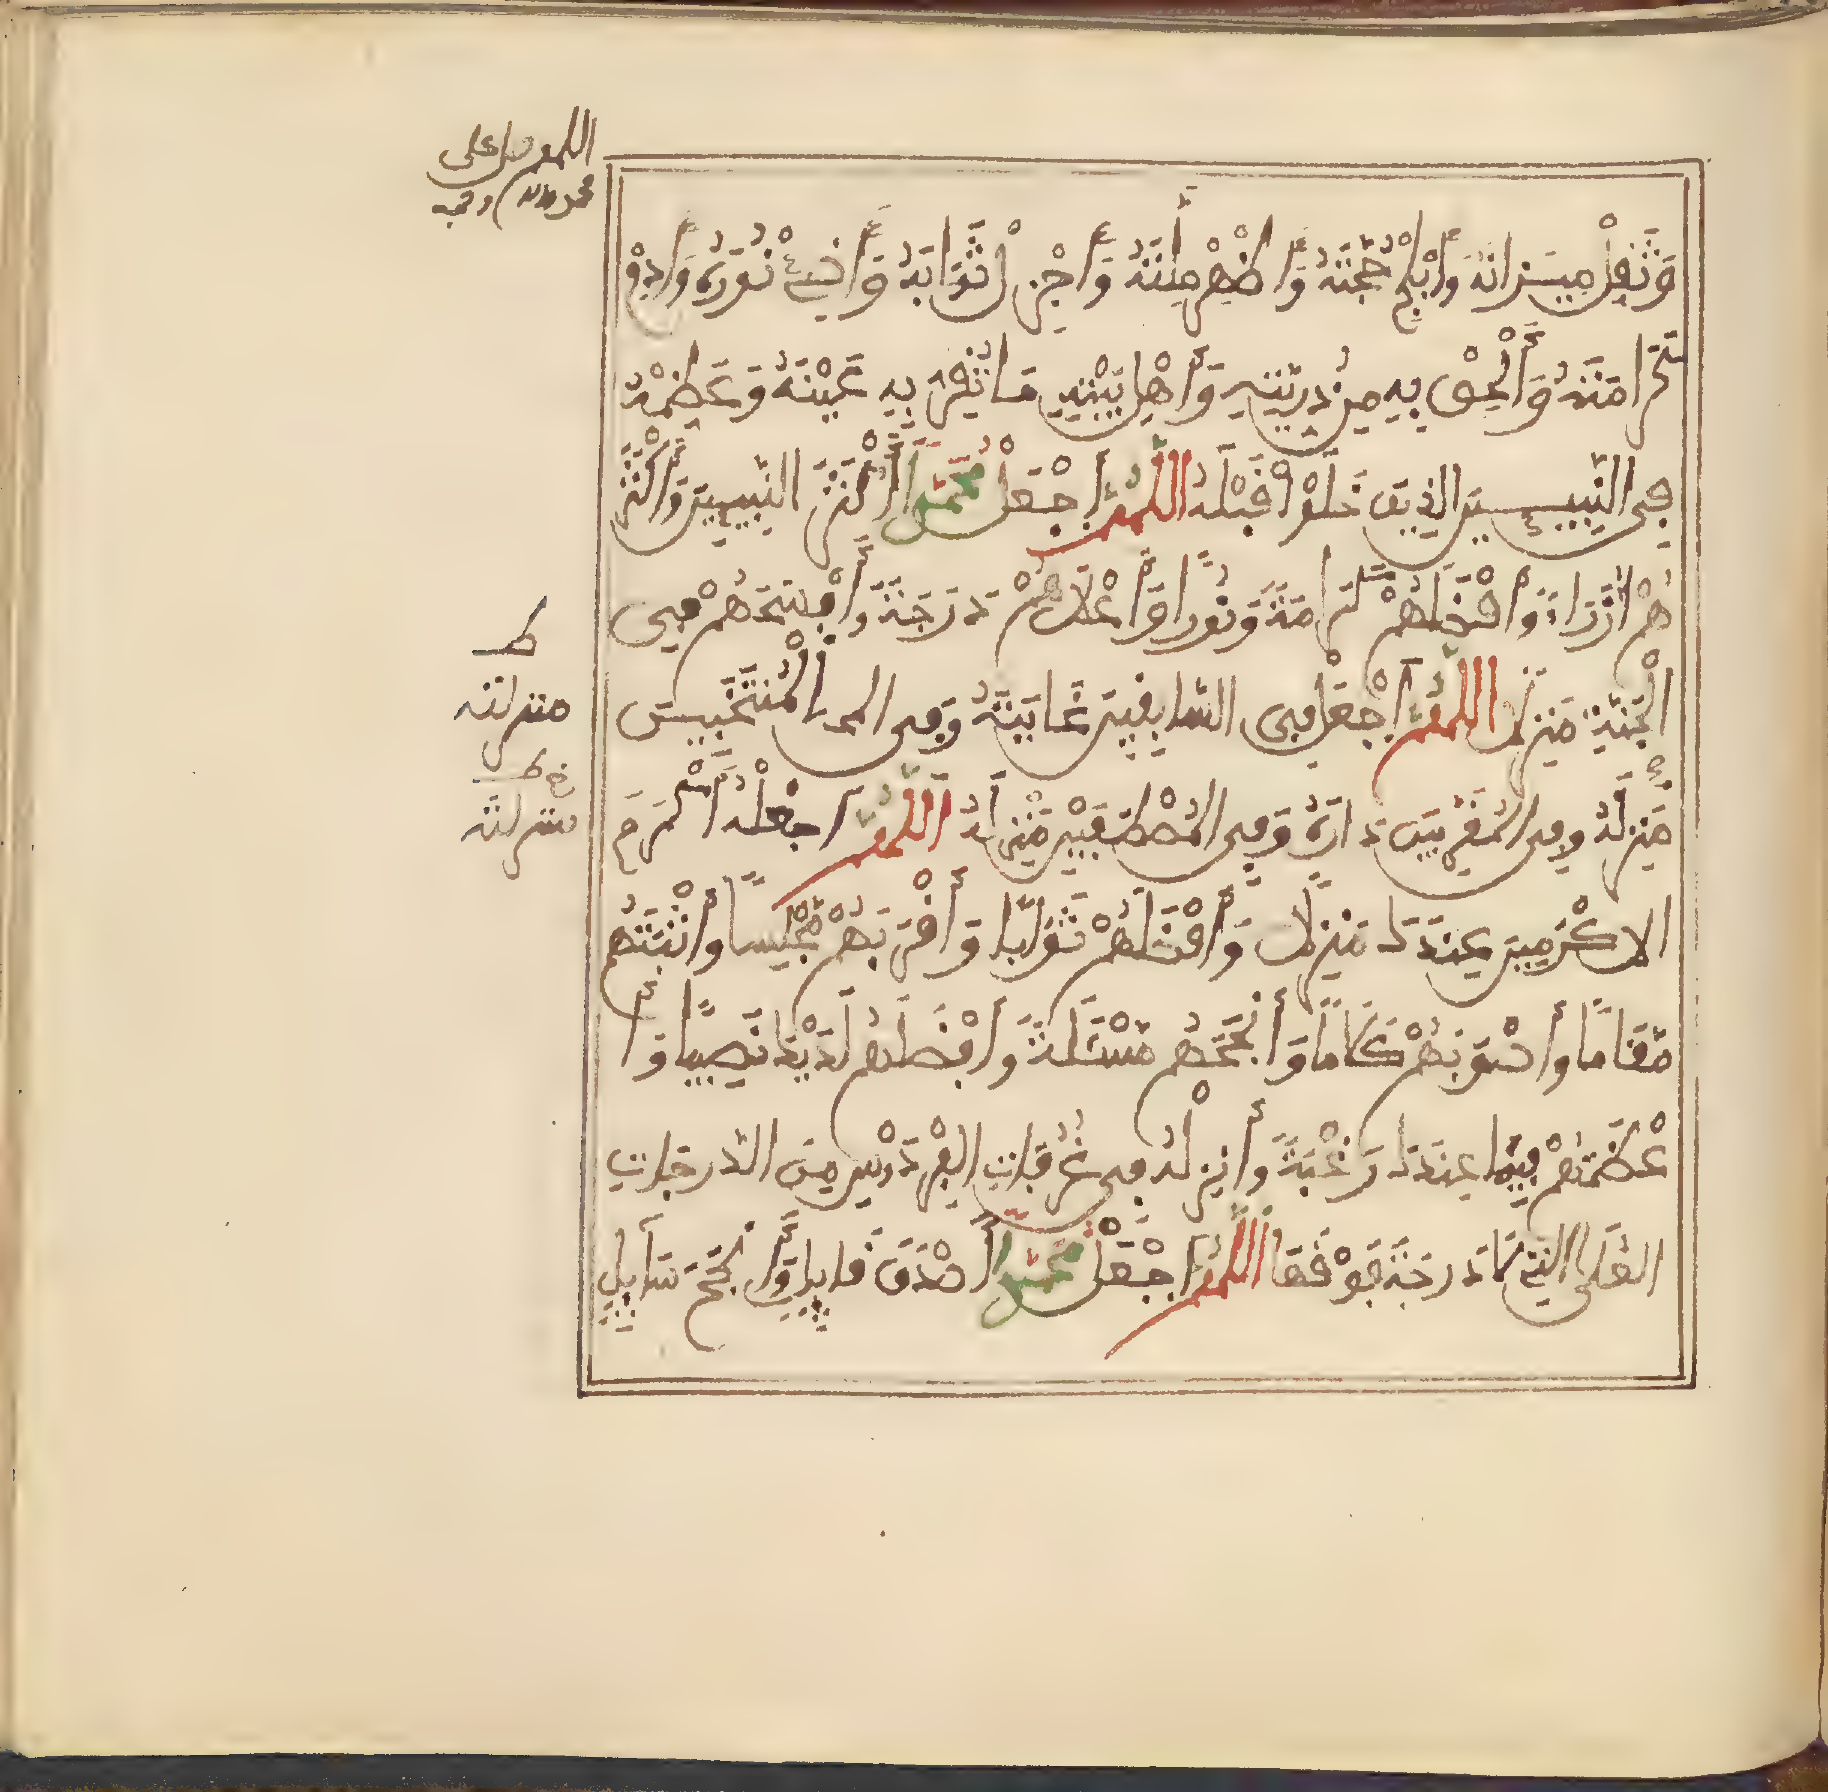 اللهم صل على
محمد وءاله وصحبه
وَثَقِّلْ مِيزَانَهُ وَأَبْلِجْ حُجَّتَهُ وَأَظْهِرْ مِلَّتَهُ وَأَجْزِلْ ثَوَابَهُ وَأَضِئْ نُورَهُ وَأَدِمْ
كَرَامَتَهُ وَأَلْحِقْ بِهِ مِن ذُرِّيَّتِهِ وَأَهْلِ بَيْتِهِ مَا تُقِرُّ بِهِ عَيْنَهُ وَعَظِّمْهُ
فِي النَّبِيِّينَ الَّذِينَ خَلَوْا قَبْلَهُ اللَّهُمَّ اجْعَلْ مُحَمَّدًا أَكْثَرَ النَّبِيِّينَ وَأَكْثَرَ
هُمْ أُزَرَاءَ وَأَفْضَلَهُمْ كَرَامَةً وَنُورًا وَأَعْلَاهُمْ دَرَجَةً وَأَفْسَحَهُمْ فِي
الْجَنَّةِ مَنْزِلًا اللَّهُمَّ اجْعَلْ فِي السَّابِقِينَ غَايَتَهُ وَفِي الْمُنْتَخَبِينَ
مَنْزِلَهُ وَفِي الْمُقَرَّبِينَ دَارَهُ وَفِي الْمُصْطَفَيْنَ مَنْزِلَهُ اللَّهُمَّ اجْعَلْهُ أَكْرَمَ
الاَكْرَمِينَ عِنْدَكَ مَنْزِلًا وَأَفْضَلَهُمْ ثَوَابًا وَأَقْرَبَهُمْ مَجْلِسًا وَأَثْبَتَهُمْ
مَقَامًا وَأَصْوَبَهُمْ كَلَامًا وَأَنْجَحَهُمْ مَسْئَلَةً وَأَفْضَلَهُمْ لَدَيْكَ نَصِيبًا وَأَ
عْظَمَهُمْ فِيمَا عِنْدَكَ رَغْبَةً وَأَنْزِلْهُ فِي غُرُفَاتِ الْفِرْدَوْسِ مِنَ الدَّرَجَاتِ
الْعُلَى الَّتِي لَا دَرَجَةَ فَوْقَهَا اللَّهُمَّ اجْعَلْ مُحَمَّدًا أَصْدَقَ قَائِلٍ وَأَنْجَحَ سَائِلٍ
ط
منزلته
خ ط
منزلته